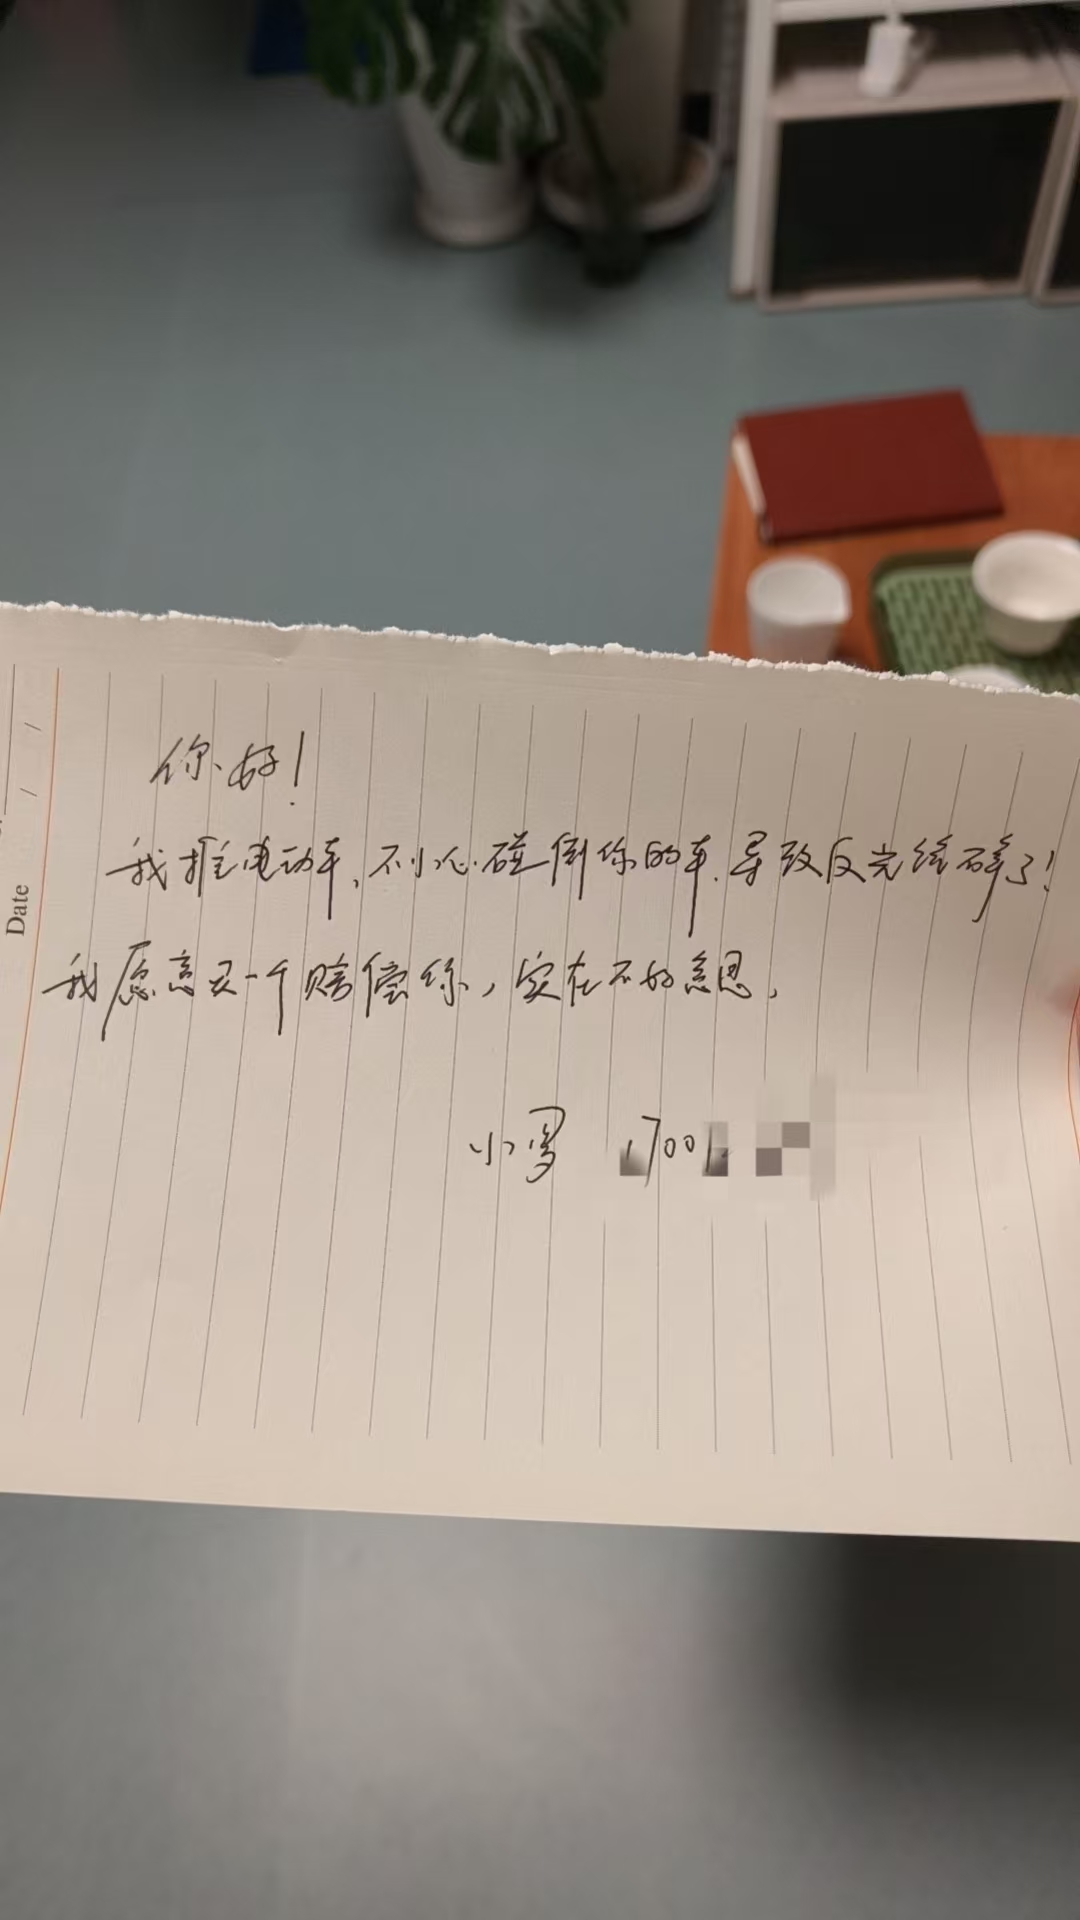 你好!
我推电动车,不小心碰倒你的车.导致反光镜碎了!
我愿意买一个赔偿你,实在不好意思,
小罗 1700
Date / /